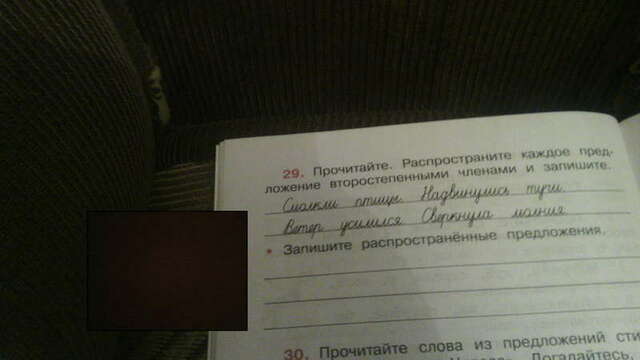 29. Прочитайте. Распространите каждое пред-
ложение второстепенными членами и запишите.
Смолкли птицы. Надвинулись тучи.
Ветер усилился. Сверкнула молния.
* Запишите распространённые предложения.
30. Прочитайте слова из предложений сти
Догадайтесь,